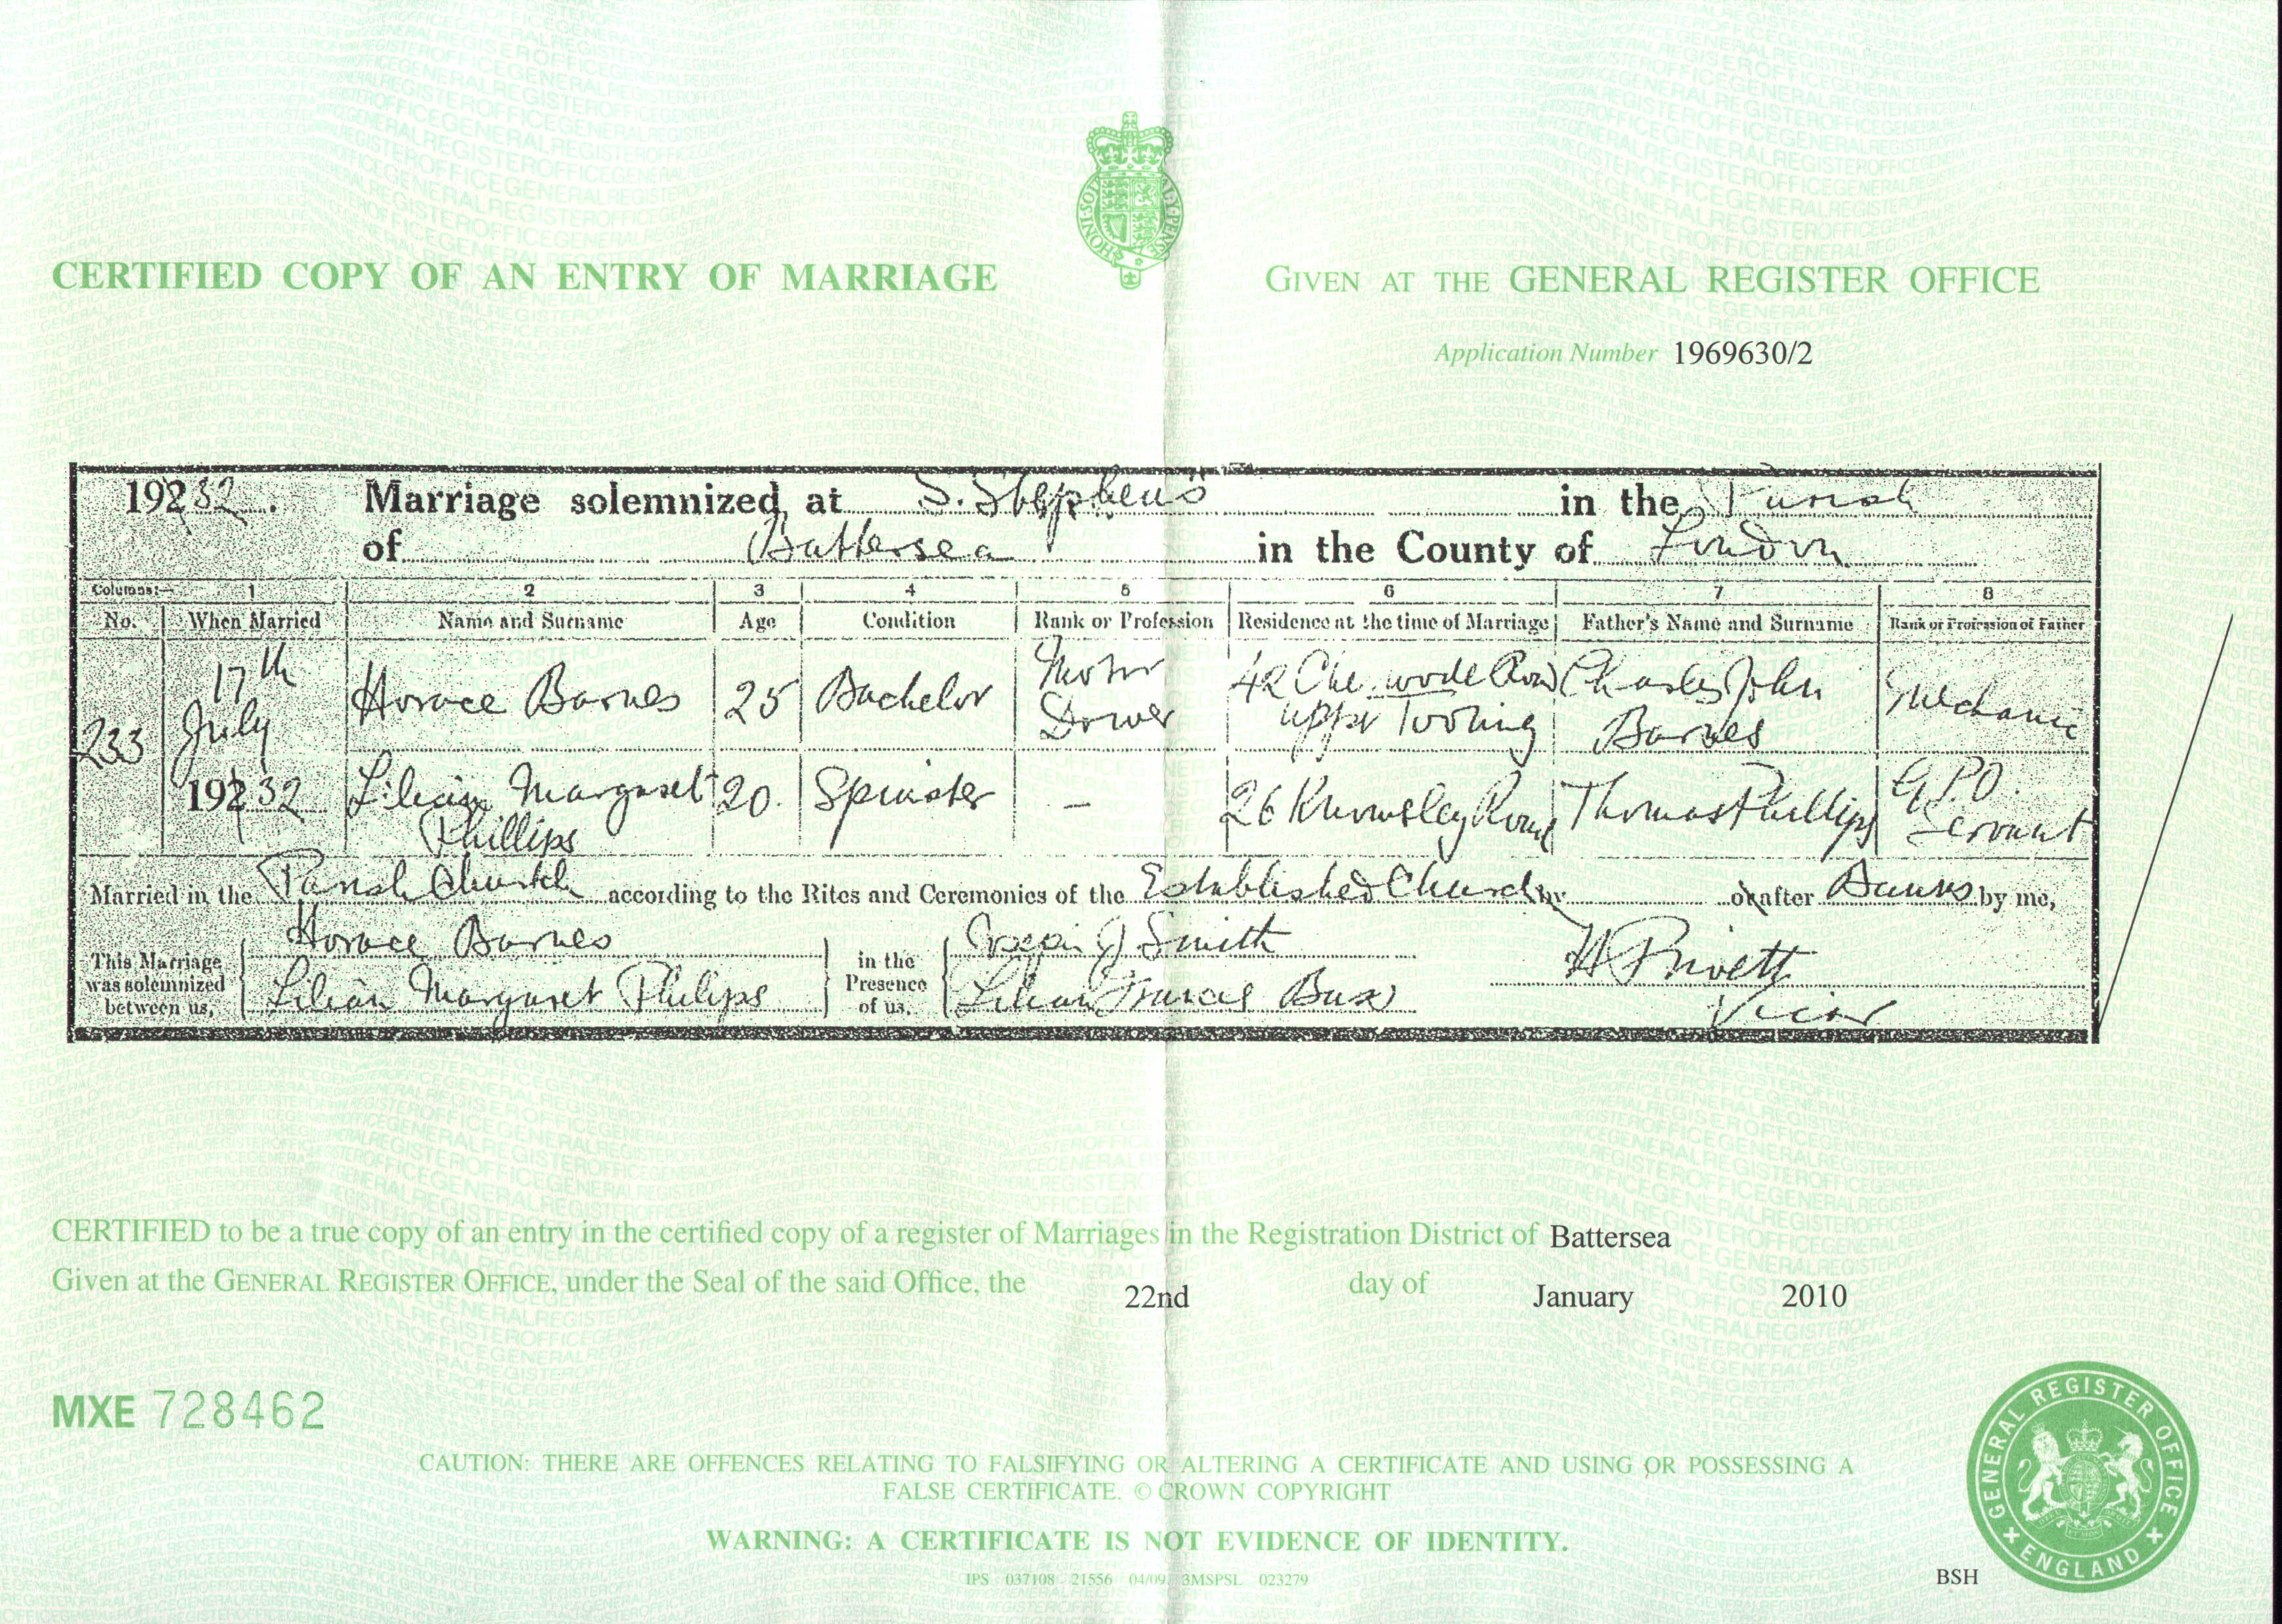 CERTIFIED COPY OF AN ENTRY OF MARRIAGE
GIVEN AT THE GENERAL REGISTER OFFICE
Application Number 1969630/2
1932. Marriage solemnized at S. Stephens in the Parish
of Battersea in the County of London
Columns:— 1 2 3 4 5 6 7 8
No. When Married Name and Surname Age Condition Rank or Profession Residence at the time of Marriage Father's Name and Surname Rank or Profession of Father
233 17th July 1932
Horace Barnes 25 Bachelor Motor Driver 42 Road Upper Tooting Charles John Barnes Mechanic
Lilian Margaret Phillips 20. Spinster — 26 Knowsley Road Thomas Phillips G.P.O. Servant
Married in the Parish Church according to the Rites and Ceremonies of the Established Church by or after Banns by me,
This Marriage was solemnized between us,
Horace Barnes
Lilian Margaret Philips
in the Presence of us,
J. Smith
Lilian Frances
H Privett
Vicar
CERTIFIED to be a true copy of an entry in the certified copy of a register of Marriages in the Registration District of Battersea
Given at the GENERAL REGISTER OFFICE, under the Seal of the said Office, the 22nd day of January 2010
MXE 728462
CAUTION: THERE ARE OFFENCES RELATING TO FALSIFYING OR ALTERING A CERTIFICATE AND USING OR POSSESSING A
FALSE CERTIFICATE. © CROWN COPYRIGHT
WARNING: A CERTIFICATE IS NOT EVIDENCE OF IDENTITY.
IPS 037108 21556 04/09 3MSPSL 023279
BSH
GENERAL REGISTER OFFICE
ENGLAND